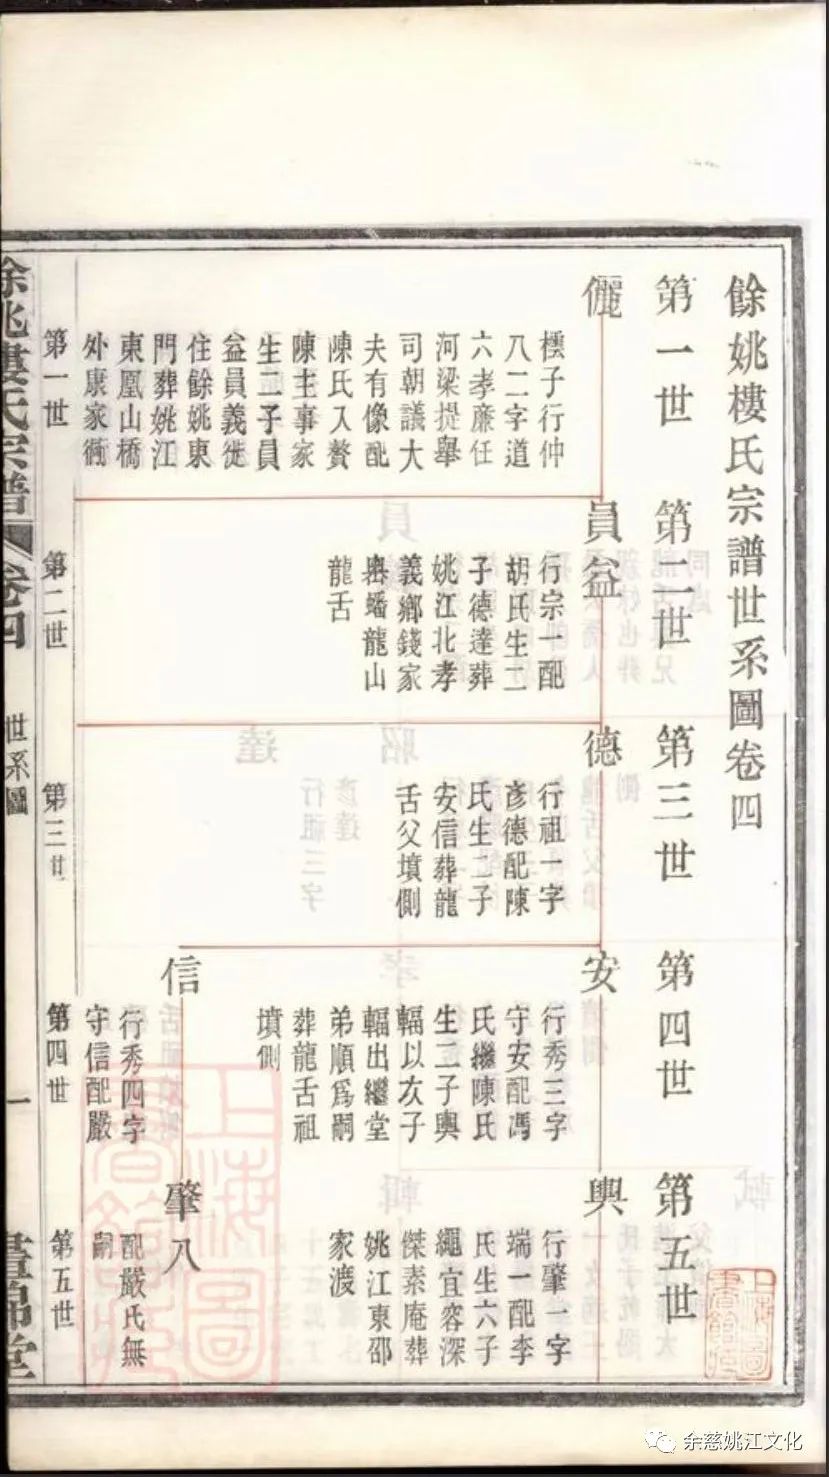 餘姚樓氏宗譜世系圖卷四
第一世
第二世
第三世
第四世
第五世
儷
橒子行仲
八二字道
六孝廉任
河梁提舉
司朝議大
夫有像配
陳氏入贅
陳主事家
生二子員
益員義徙
住餘姚東
門葬姚江
東鳳山橋
外康家衖
員益
行宗一配
胡氏生二
子德達葬
姚江北孝
義鄉錢家
嶴蟠龍山
龍舌
德
行祖一字
彥德配陳
氏生二子
安信葬龍
舌父墳側
安
行秀三字
守安配馮
氏繼陳氏
生二子輿
輻以次子
輻出繼堂
弟順爲嗣
葬龍舌祖
墳側
信
行秀四字
守信配嚴
輿
行肇一字
端一配李
氏生六子
繩宜容深
傑素庵葬
姚江東邵
家渡
肇八
配嚴氏無
嗣
餘姚樓氏宗譜
卷四
世系圖
一
晝錦堂
第一世
第二世
第三世
第四世
第五世
上海圖書館藏
上海圖書館藏
余慈姚江文化